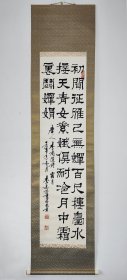 初聞征雁已無蟬百尺樓臺水
接天青女素娥俱耐冷月中霜
裏鬪嬋娟